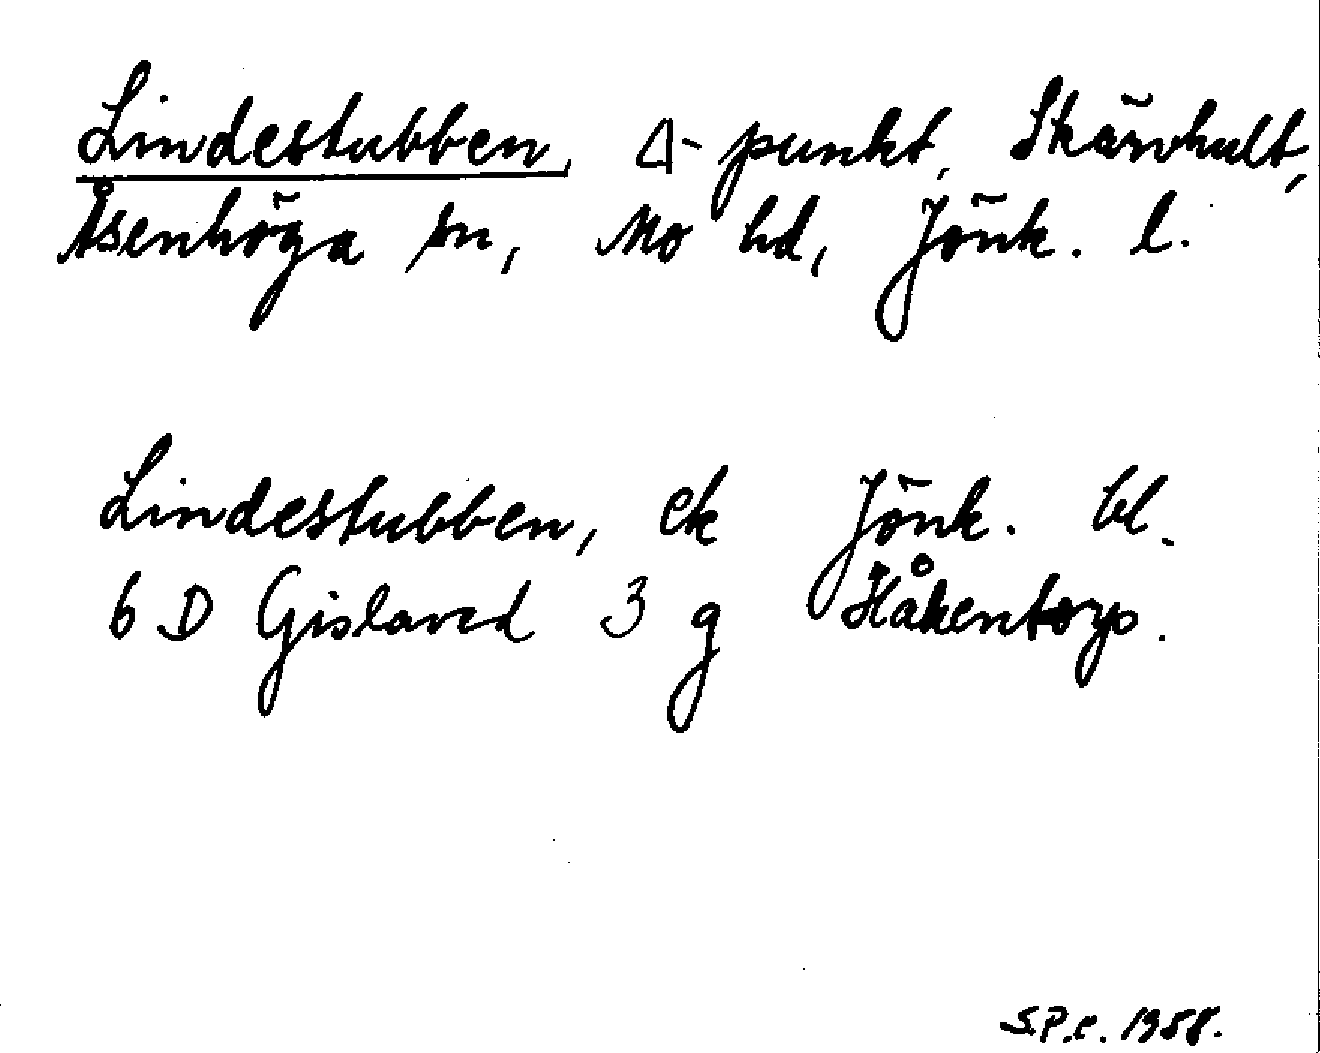 Lindestubben, Δ-punkt, Skärvhult,
Åsenhöga sn, Mo hd, Jönk. l.
Lindestubben, ek Jönk. bl.
6 D Gislaved 3 g Håkentorp.
S.P.c. 1958.